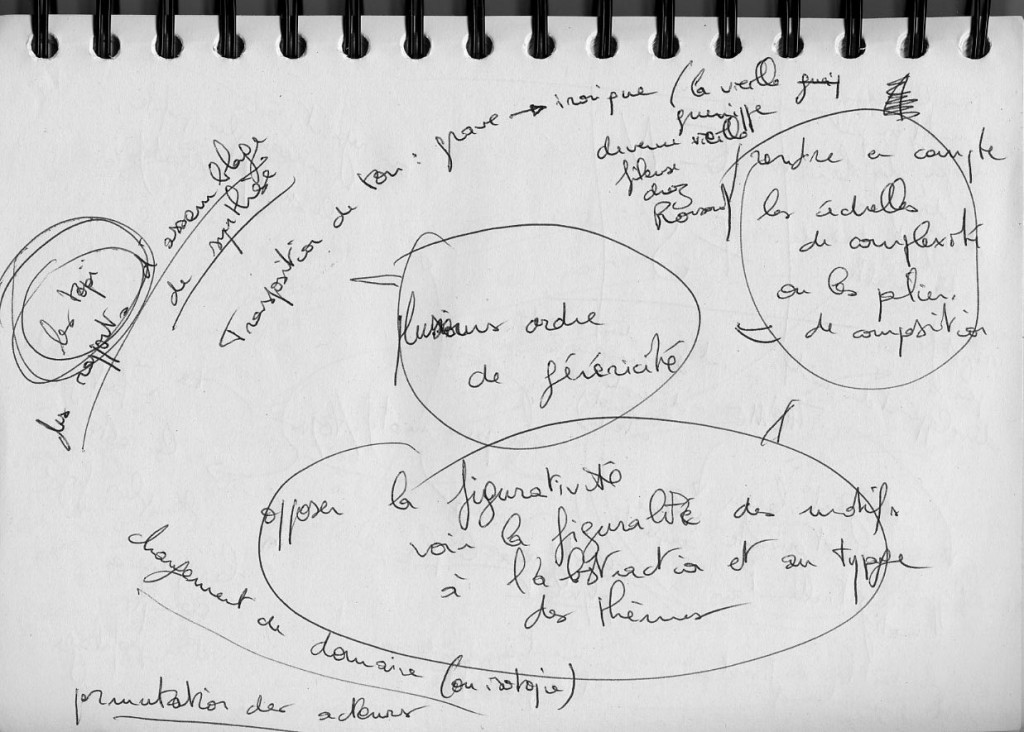 Transposition de ton : grave → ironique (la vieille
guenippe
devenue vieille
fileuse
chez
Ronsard)
prendre en compte
les échelles
de complexité
ou les plier.
de composition
assemblage
de synthèse
les topi
des rapports d'
plusieurs ordre
de généricité
opposer la figurativité
voir la figuralité des motifs
à l'abstraction et au type
des thèmes
changement de domaine (ou isotopie)
permutation des acteurs